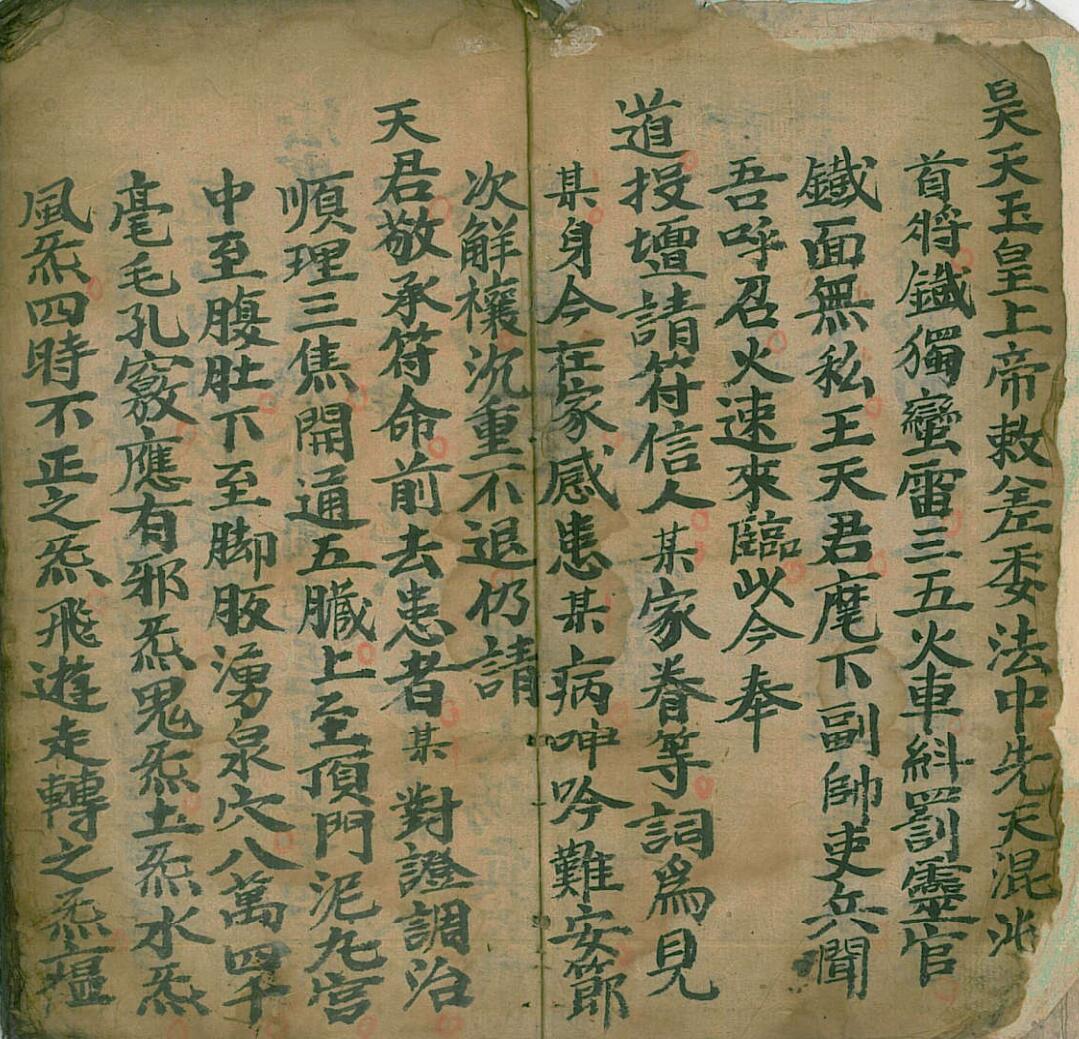 昊天玉皇上帝敕差委法中先天混沌
首將鐵獨蠻雷三五火車糾罰靈官
鐵面無私王天君麾下副帥吏兵聞
吾呼召火速來臨以今奉
道投壇請符信人某家眷等詞為見
某身今在家感患某病呻吟難安節
次觧禳沉重不退仍請
天君敬承符命前去患者某對證調治
順理三焦開通五臟上至頂門泥丸宮
中至腹肚下至脚股湧泉穴八萬四千
毫毛孔竅應有邪炁鬼炁土炁水炁
風炁四時不正之炁飛遊走轉之炁瘟